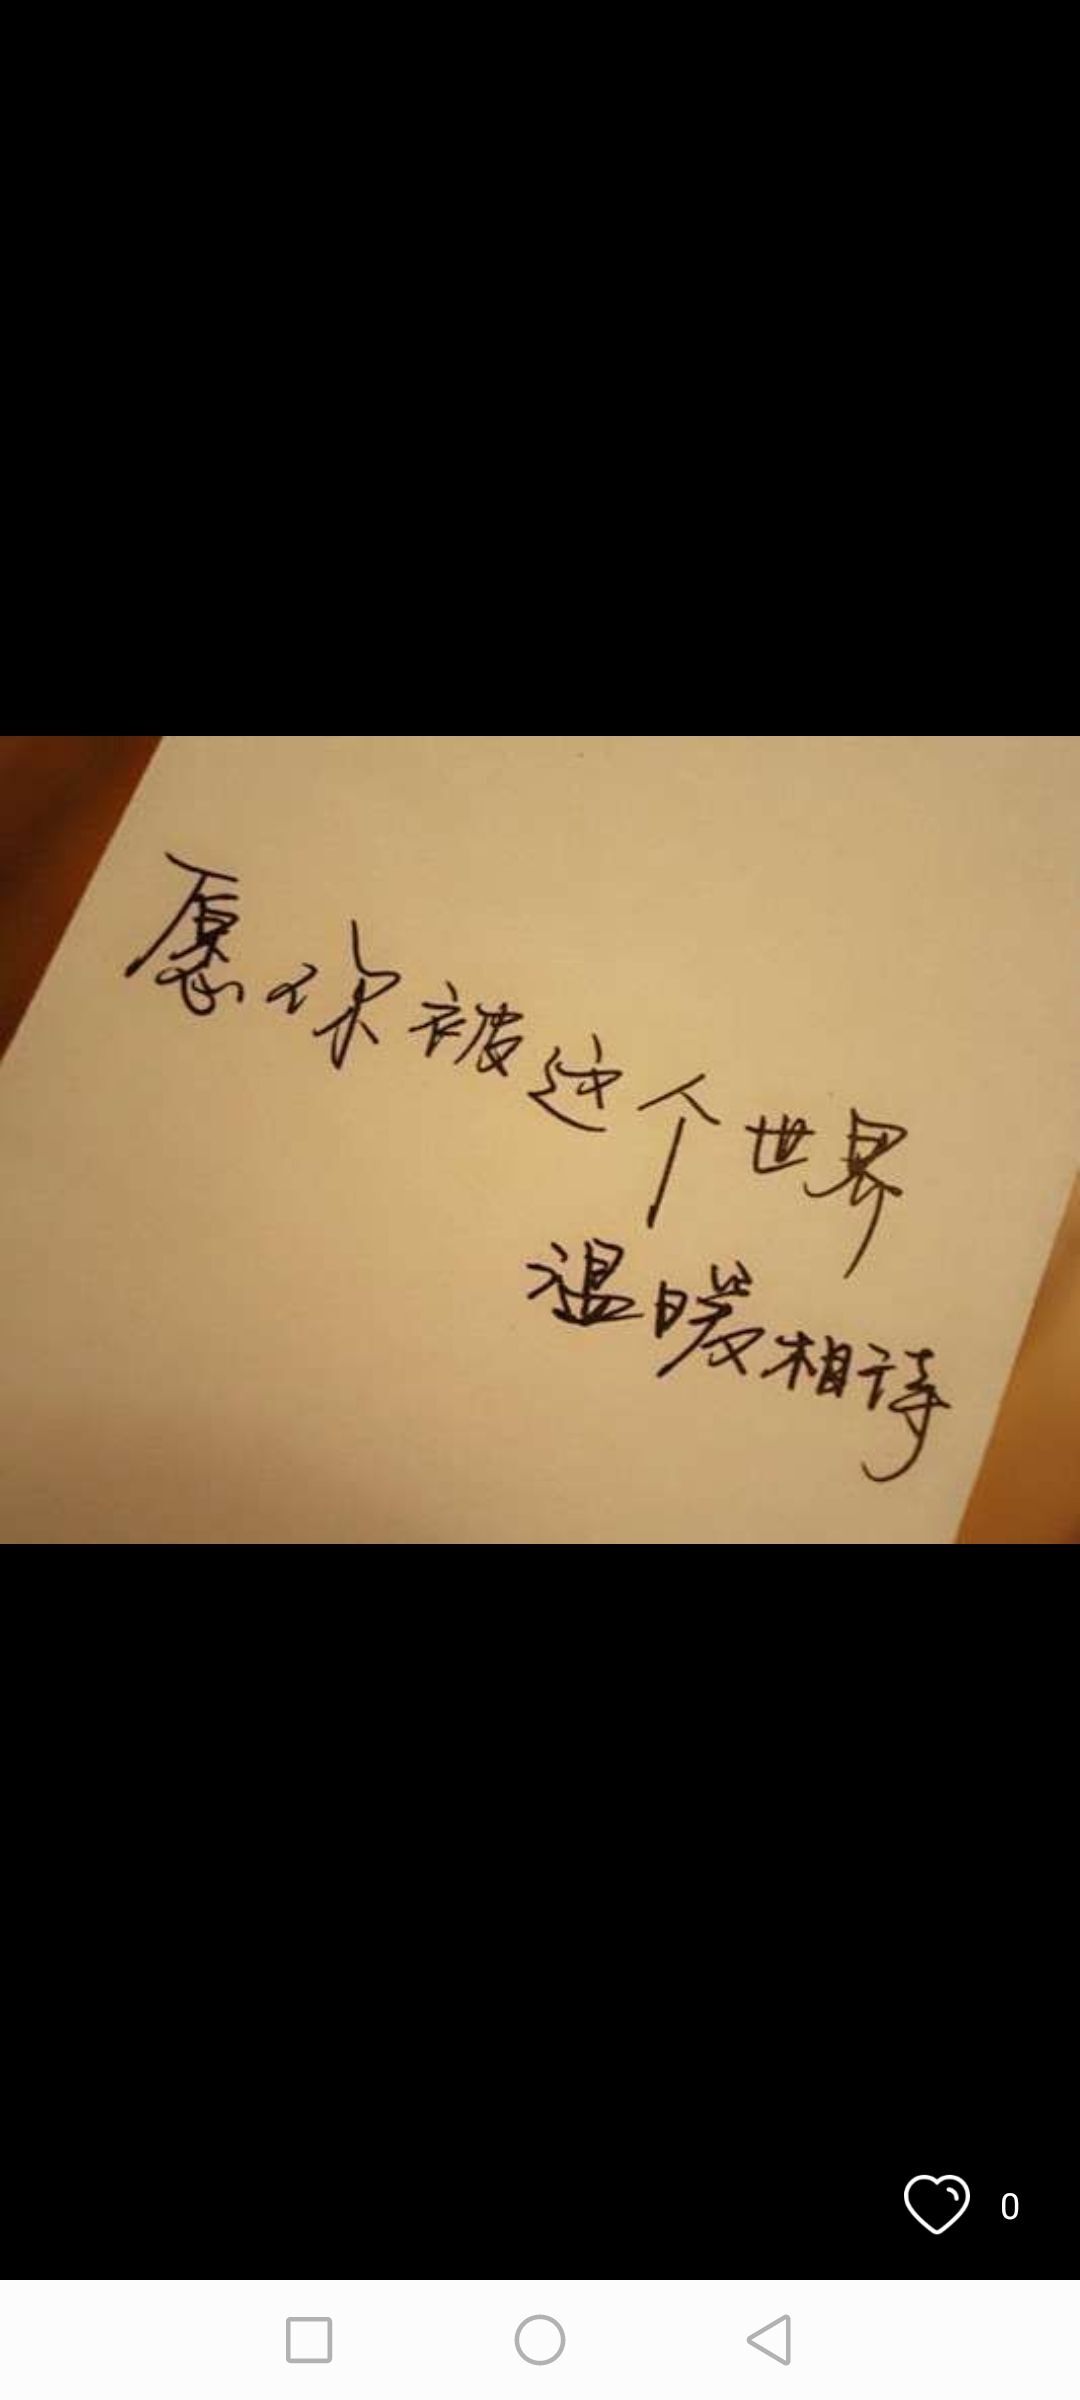 愿你被这个世界
温暖相诗
0